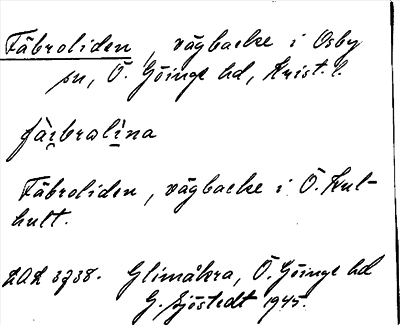 Fäbroliden, vägbacke i Osby
sn, Ö. Göinge hd, Krist. l.
fài̯bralì̠na
Fäbroliden, vägbacke i Ö. Hul-
hult.
LAL 3738. Glimåkra, Ö. Göinge hd
G. Sjöstedt 1945.